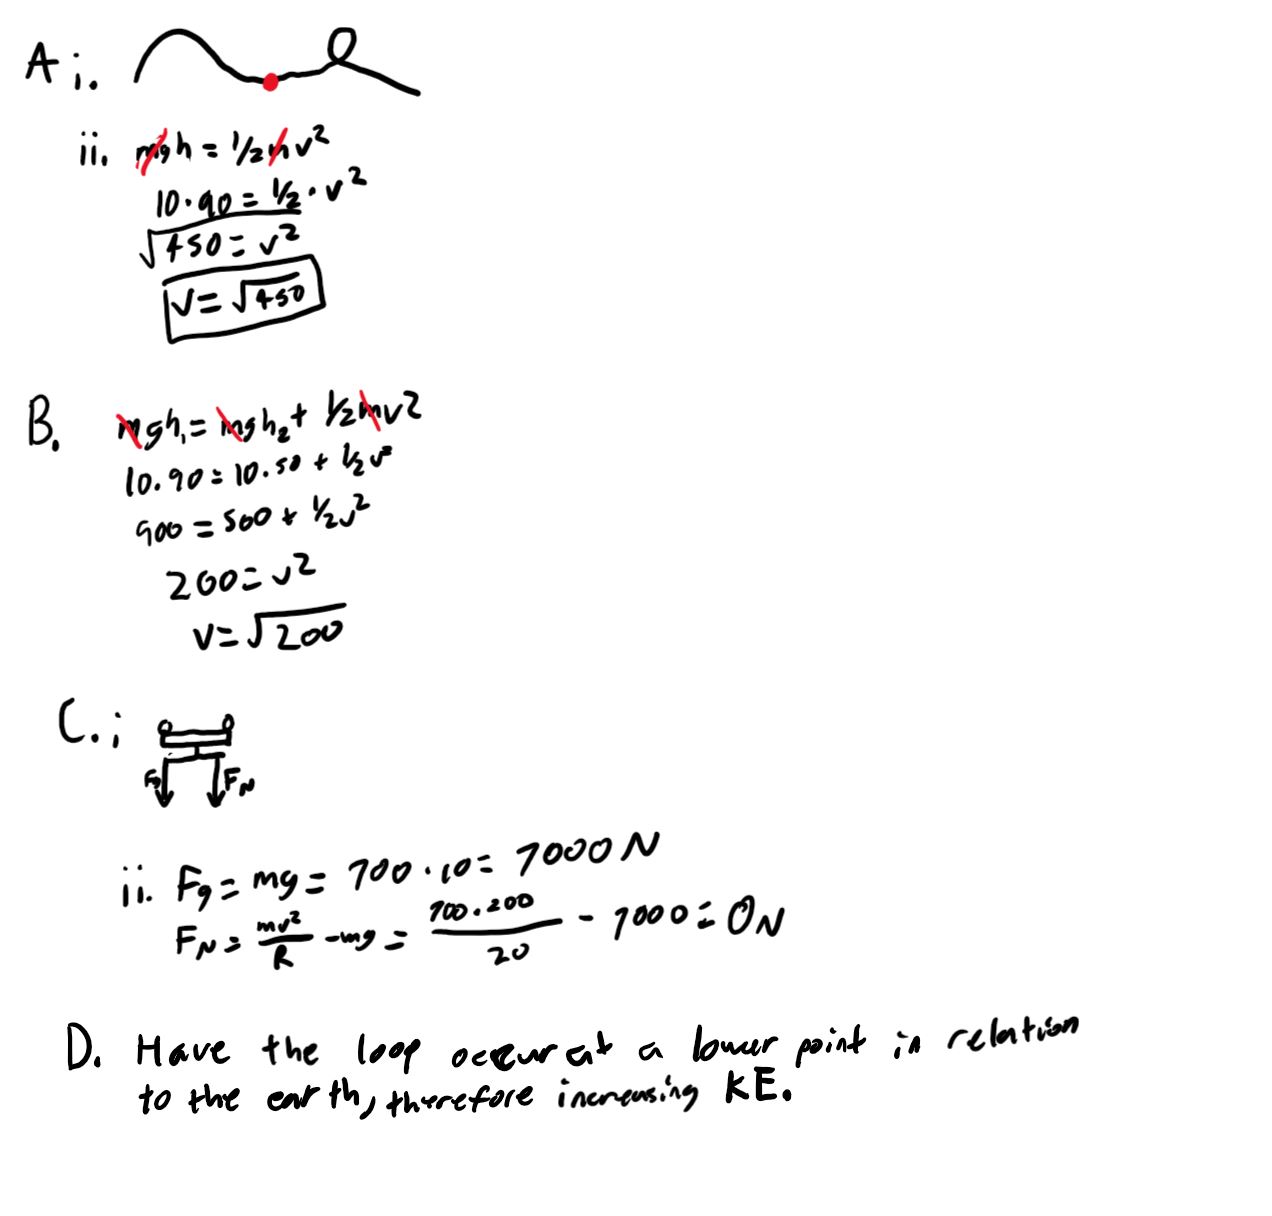 A i.
ii. mgh = 1/2 m v²
10 · 90 = 1/2 · v²
√450 = v²
v = √450
B. mgh₁ = mgh₂ + 1/2mv2
10.90 = 10.50 + 1/2 v²
900 = 500 + 1/2v²
200 = v²
v = √200
C. i
Fg FN
ii. Fg = mg = 700 · 10 = 7000 N
FN = mv²/R - mg = 700 · 200/20 - 7000 = 0N
D. Have the loop occur at a lower point in relation
to the earth, therefore increasing KE.